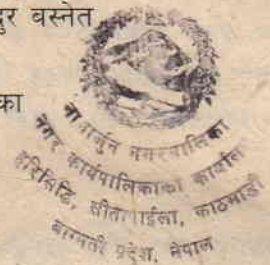 दुर बस्नेत
का
नागार्जुन नगरपालिका
नगर कार्यपालिकाको कार्यालय
हरिसिद्धि, सीतापाईला, काठमाडौं
बागमती प्रदेश, नेपाल